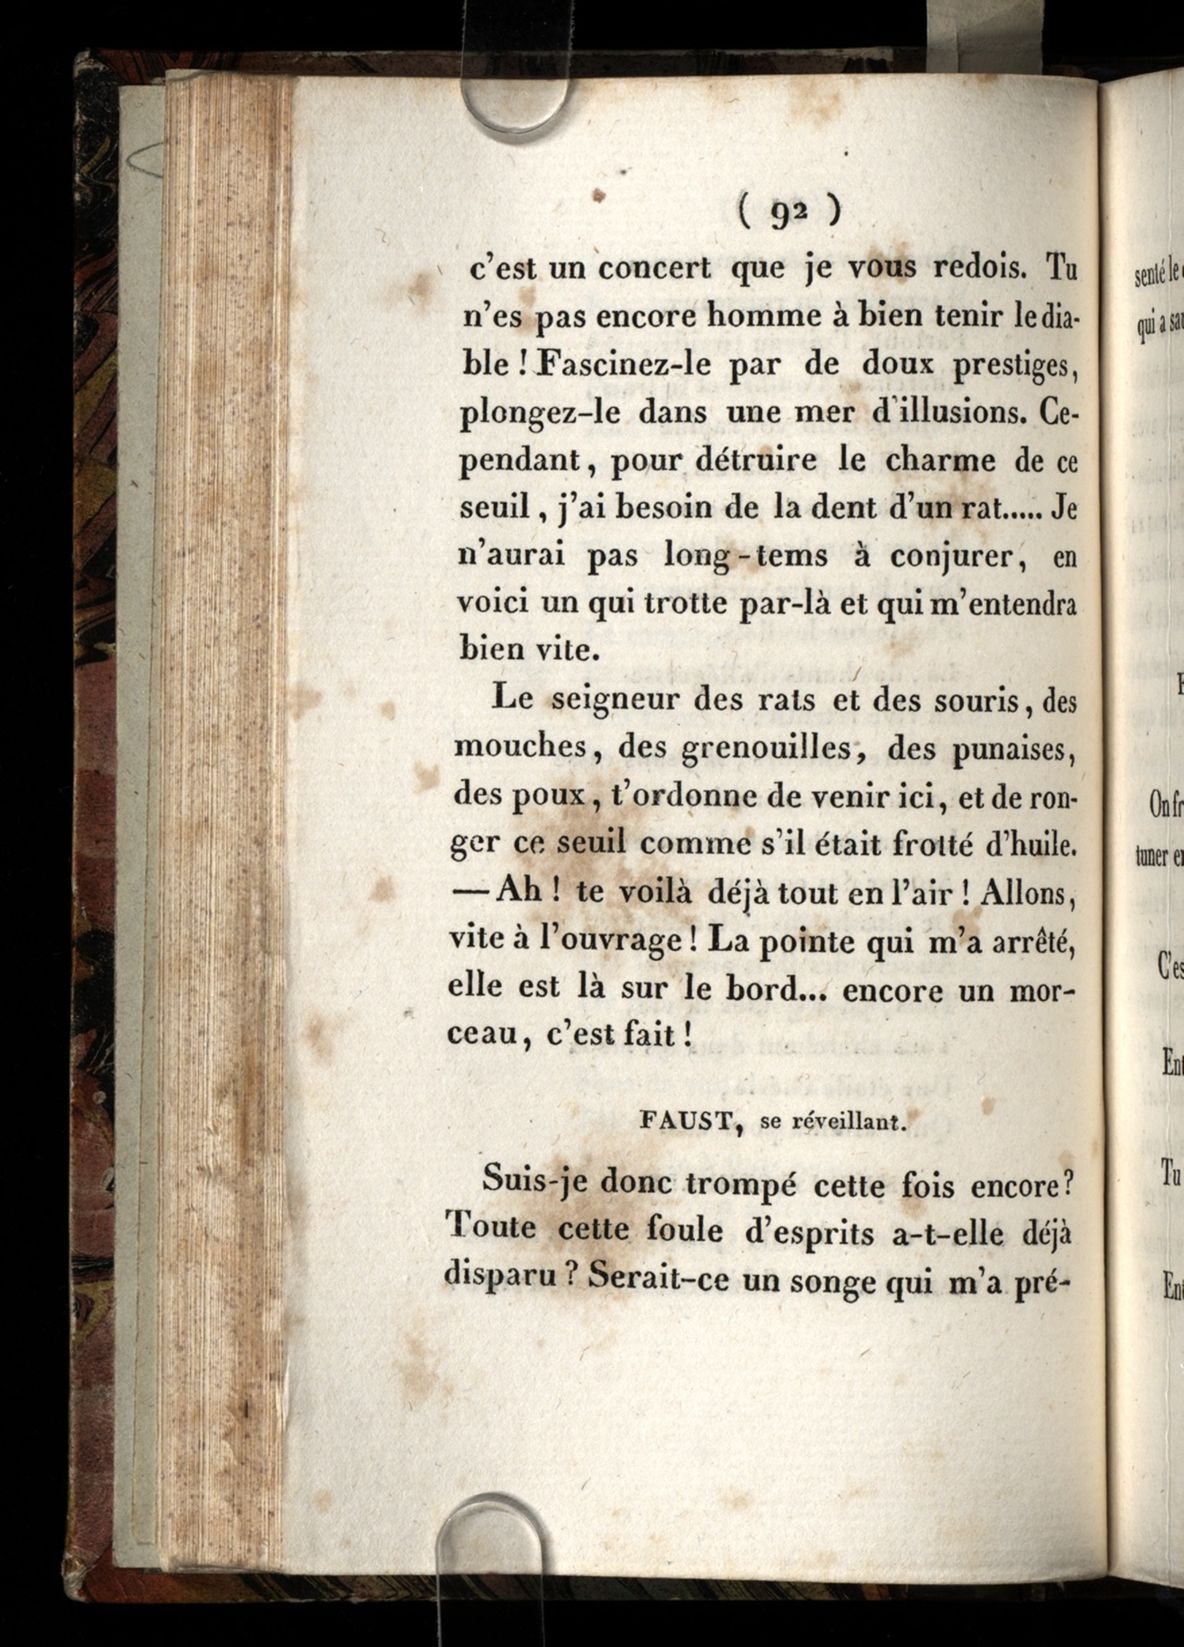 ( 92 )
c'est un concert que je vous redois. Tu
n'es pas encore homme à bien tenir le dia-
ble ! Fascinez-le par de doux prestiges,
plongez-le dans une mer d'illusions. Ce-
pendant, pour détruire le charme de ce
seuil, j'ai besoin de la dent d'un rat..... Je
n'aurai pas long-tems à conjurer, en
voici un qui trotte par-là et qui m'entendra
bien vite.
Le seigneur des rats et des souris, des
mouches, des grenouilles, des punaises,
des poux, t'ordonne de venir ici, et de ron-
ger ce seuil comme s'il était frotté d'huile.
— Ah ! te voilà déjà tout en l'air ! Allons,
vite à l'ouvrage ! La pointe qui m'a arrêté,
elle est là sur le bord... encore un mor-
ceau, c'est fait !
FAUST, se réveillant.
Suis-je donc trompé cette fois encore ?
Toute cette foule d'esprits a-t-elle déjà
disparu ? Serait-ce un songe qui m'a pré-
senté le
qui a
On
tuner
Tu